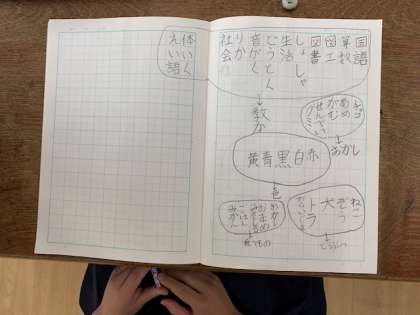 国語
算数
図工
図書
しょしゃ
生活
どうとく
音がく
りか
社会
体いく
えい語
↓
教か
チョコ
あめ
がむ
グミ
↓
おかし
赤
白
黒
青
黄
色
ねこ
ぞう
犬
トラ
↓
どうぶつ
おかし
ごはん
みかん
↓
食べもの